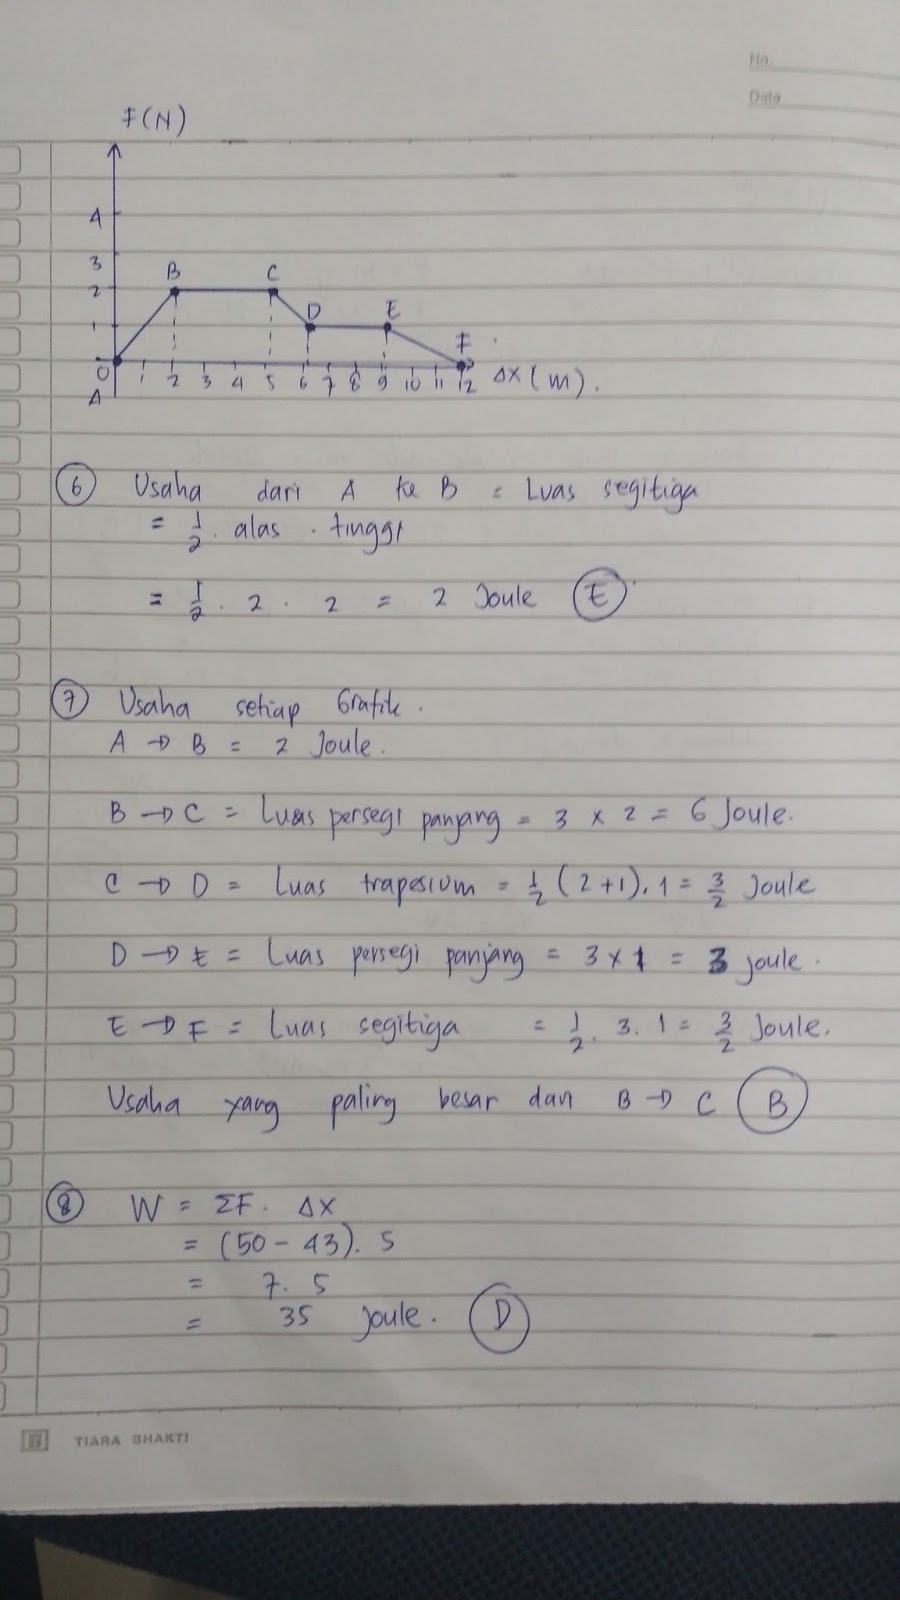 No.
Date
F(N)
4
3
B C
2
D E
1
F
0 1 2 3 4 5 6 7 8 9 10 11 12 Δx (m).
A
6 Usaha dari A ke B = Luas segitiga
= 1/2 . alas . tinggi
= 1/2 . 2 . 2 = 2 Joule E
7 Usaha setiap Grafik.
A → B = 2 Joule.
B → C = Luas persegi panjang = 3 x 2 = 6 Joule.
C → D = Luas trapesium = 1/2 (2+1).1 = 3/2 Joule
D → E = Luas persegi panjang = 3 x 1 = 3 joule.
E → F = Luas segitiga = 1/2 . 3 . 1 = 3/2 Joule.
Usaha yang paling besar dari B → C B
8 W = ΣF . Δx
= (50 - 43) . 5
= 7 . 5
= 35 Joule. D
TIARA SHAKTI